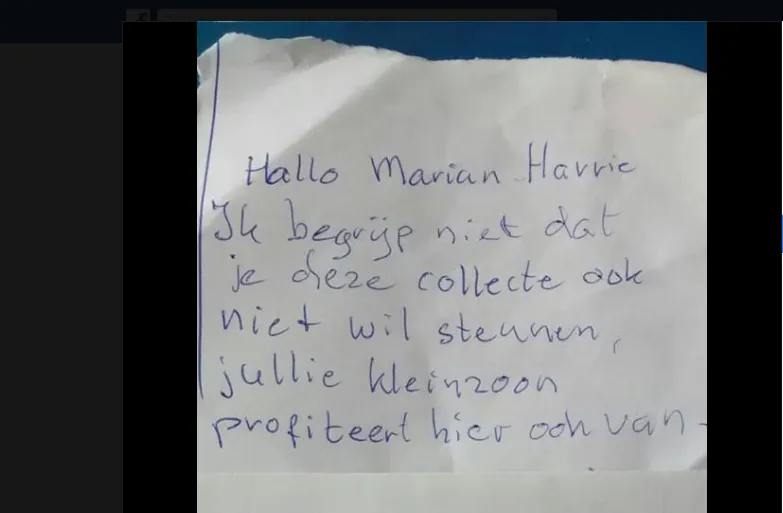 Hallo Marian Harrie
Ik begrijp niet dat
je deze collecte ook
niet wil steunen,
jullie kleinzoon
profiteert hier ook van